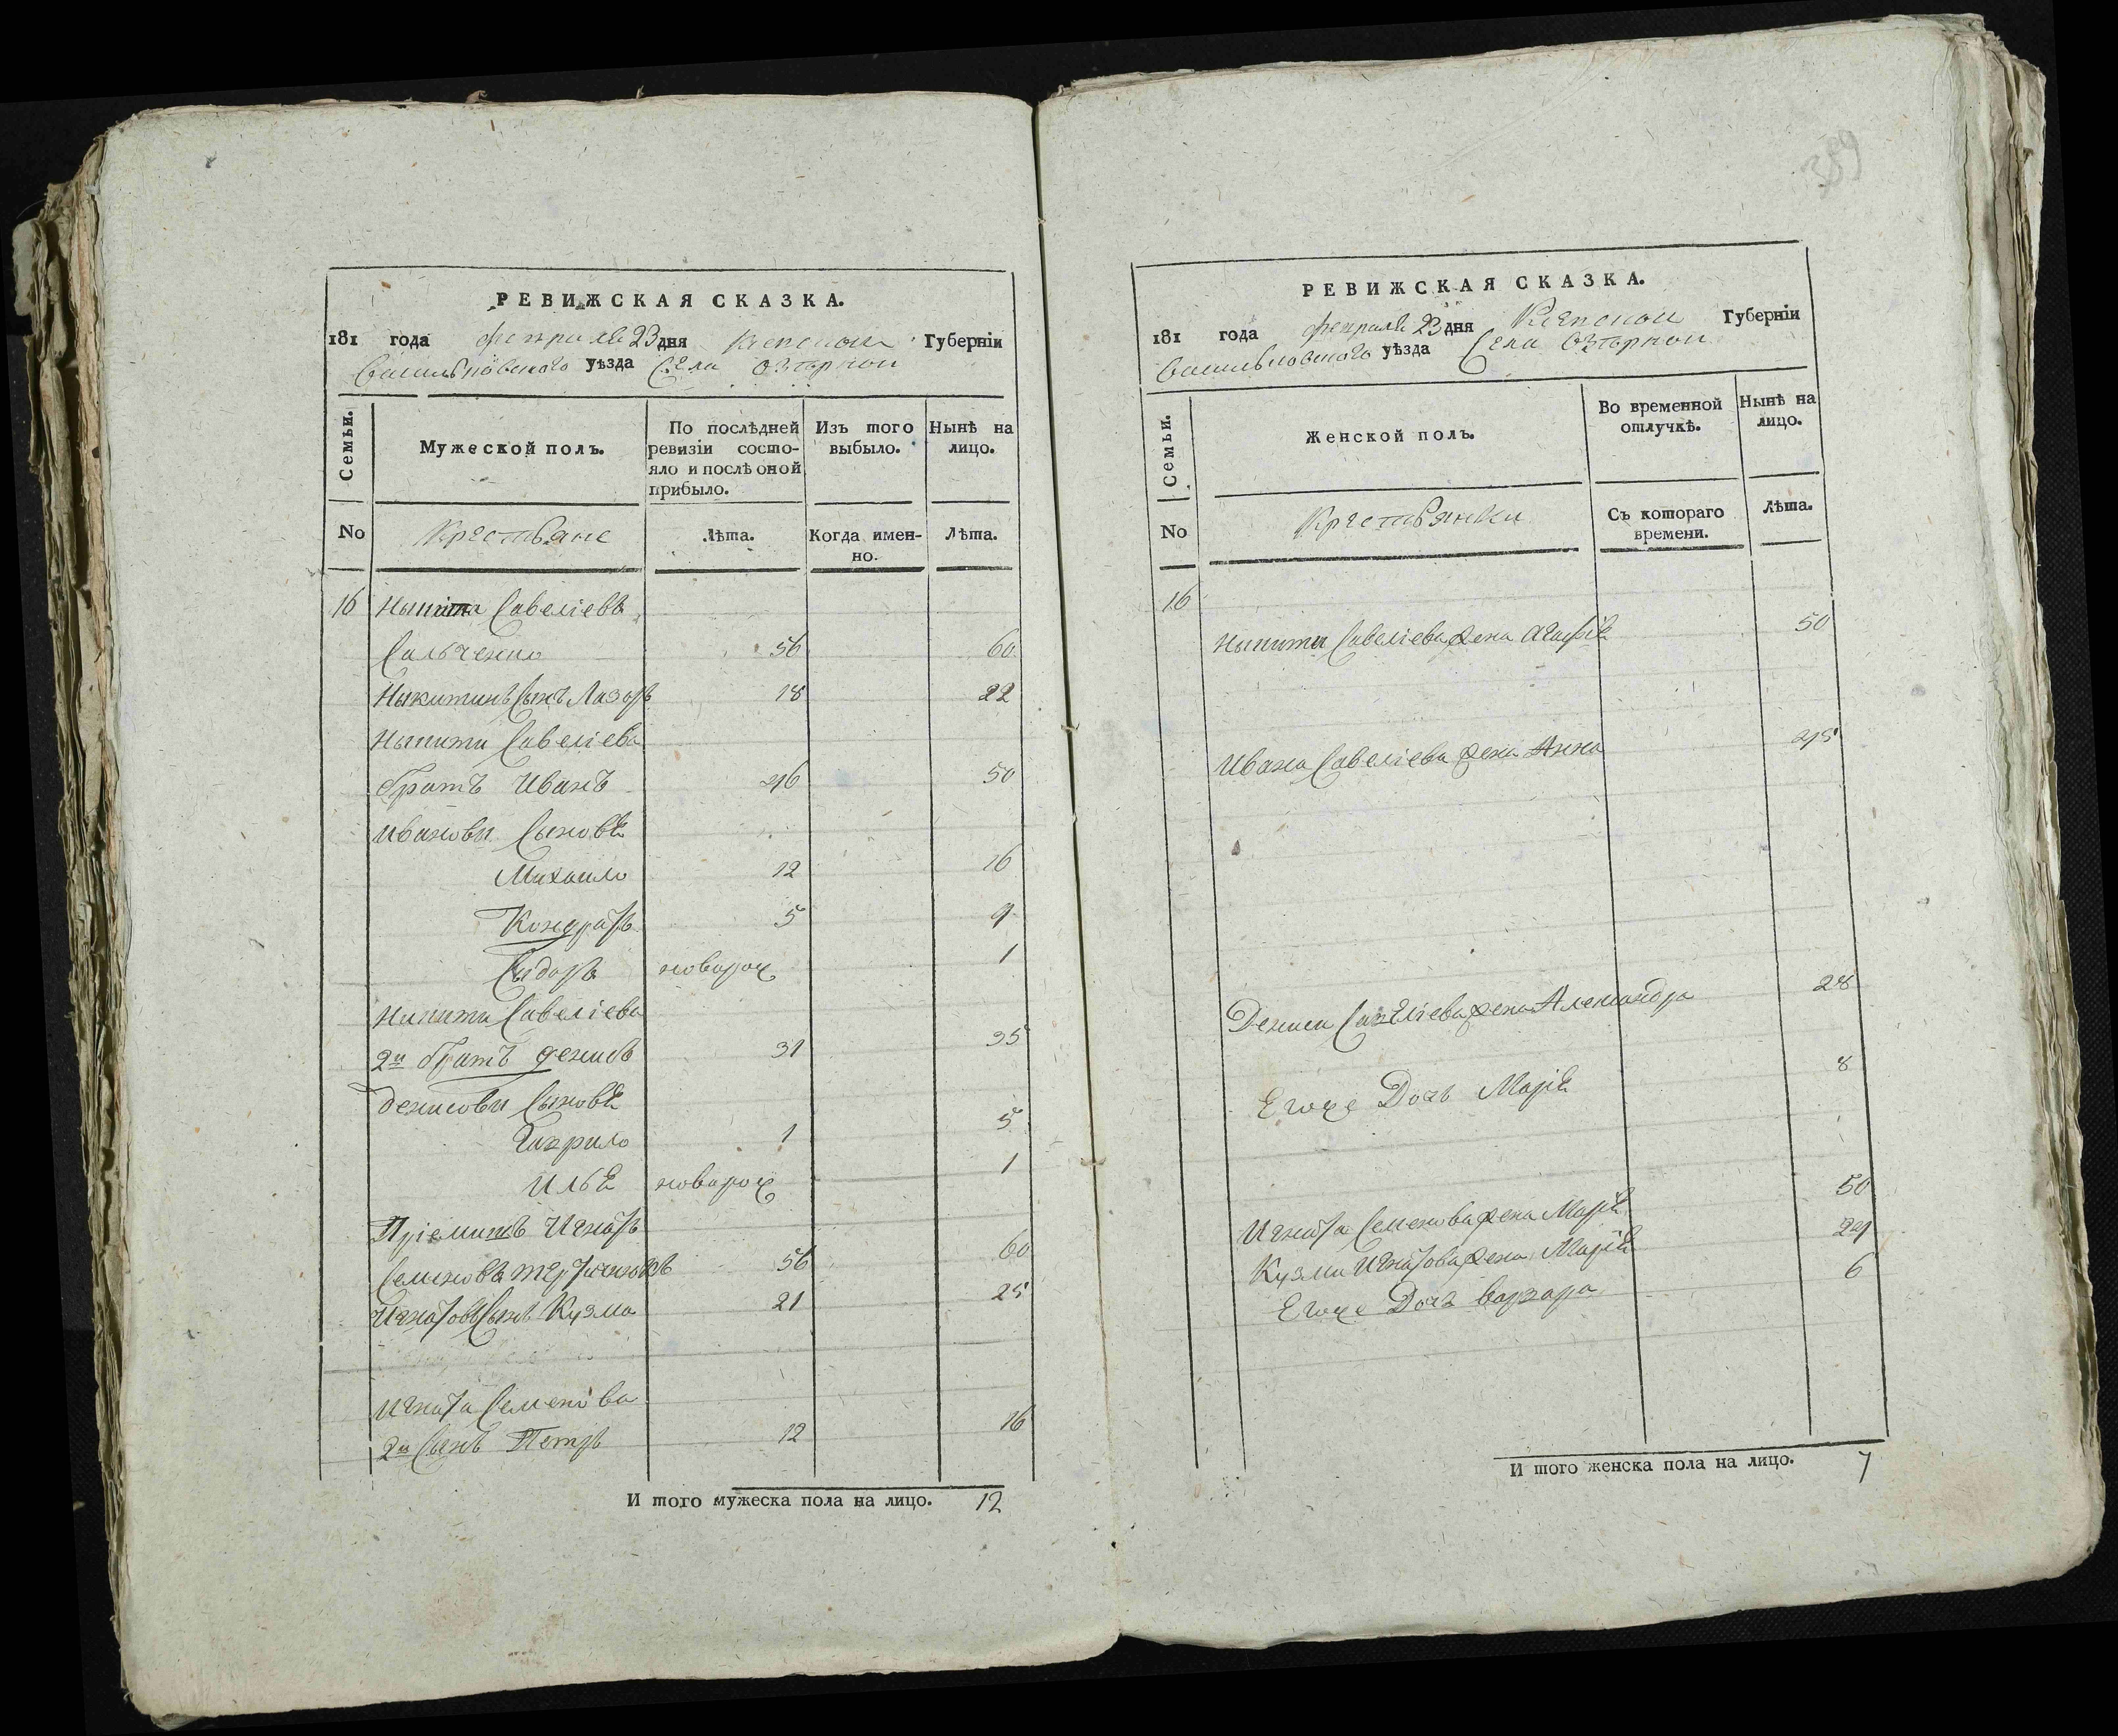 389
РЕВИЖСКАЯ СКАЗКА.
181 года февраля 23 дня Киевской Губернїи
Васильковского уѣзда Села Озѣрной
Семьи.
Мужеской полъ.
По послѣдней ревизїи состо-
яло и послѣ оной прибыло.
Изъ того выбыло.
Нынѣ на лицо.
No
Крестьяне
Лѣта.
Когда имен-
но.
Лѣта.
16 Никита Савелїевъ
Сальченко 56 60
Никитинъ Сынъ Лазорь 18 22
Никити Савелїева
братъ Иванъ 46 50
Ивановы Сыновѣ
Михаило 12 16
Кондратъ 5 9
Сидоръ новорож 1
Никити Савелїева
2й братъ денисъ 31 35
денисовы Сыновѣ
Гаврило 1 5
Илья новорож 1
Прїемишъ Игнатъ
Семеновъ 56 60
Игнатовъ Сынъ Кузма 21 25
Игната Семенова
2й Сынъ Петръ 12 16
И того мужеска пола на лицо. 12
РЕВИЖСКАЯ СКАЗКА.
181 года февраля 23 дня Киевской Губернїи
Васильковского уѣзда Села Озѣрной
Семьи.
Женской полъ.
Во временной отлучкѣ.
Нынѣ на лицо.
No
Крестьянки
Съ котораго времени.
Лѣта.
16
Никиты Савелїева жена Агафїя 50
Ивана Савелїева жена Анна 45
Дениса Савелїева жена Александра 28
Егоже Дочь Марїя 8
Игната Семенова жена Марїя 50
Кузмы Игнатова жена Марїя 24
Егоже Дочь варвара 6
И того женска пола на лицо. 7